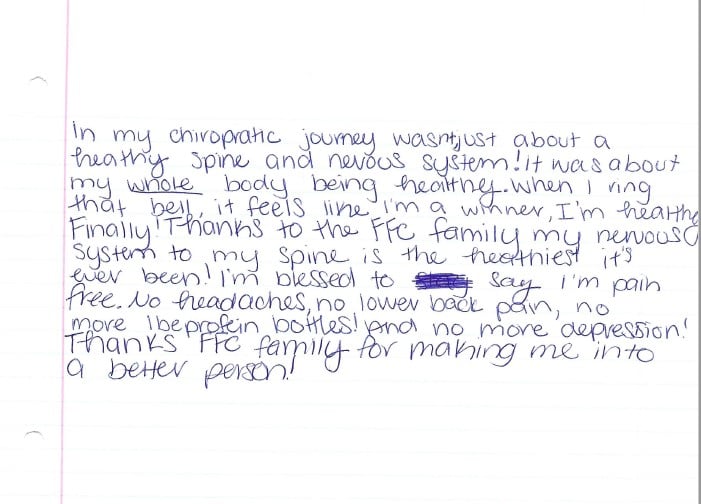 In my chiropratic journey wasn't just about a
heathy spine and nevous system! It was about
my whole body being healthey. When I ring
that bell, it feels like I'm a winner, I'm healthe
Finally! Thanks to the FFC family my nervous
system to my spine is the heathiest it's
ever been! I'm blessed to say I'm pain
free. No headaches, no lower back pain, no
more Ibeprofein bottles! And no more depression!
Thanks FFC family for making me into
a better person!